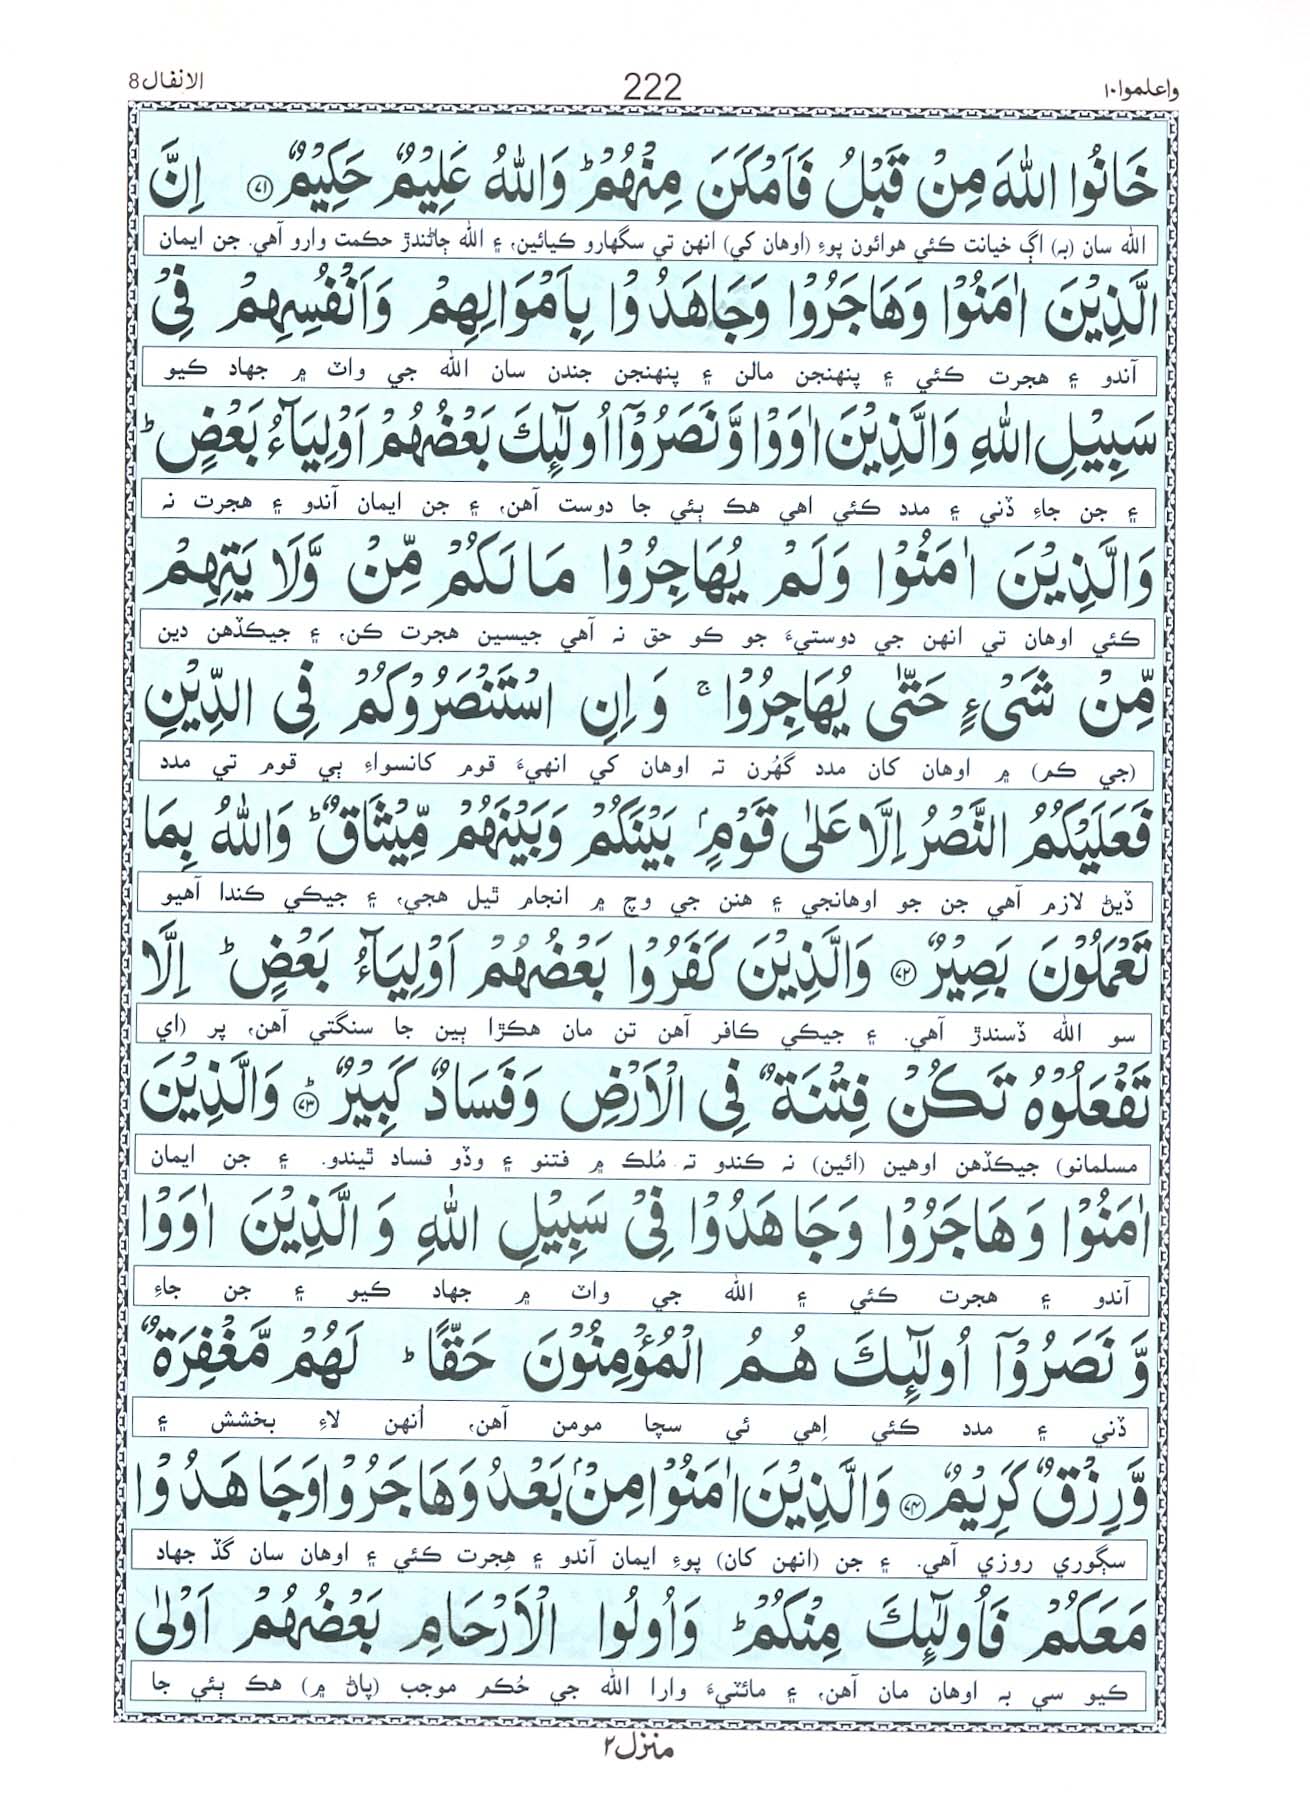 واعلموا۱۰ 222 الانفال8
خَانُوا اللّٰهَ مِنْ قَبْلُ فَاَمْكَنَ مِنْهُمْ ؕ وَاللّٰهُ عَلِيْمٌ حَكِيْمٌ ﴿۷۱﴾ اِنَّ
الله سان (به) اڳ خيانت ڪئي هوائون پوءِ (اوهان کي) انهن تي سگهارو ڪيائين، ۽ الله ڄاڻندڙ حڪمت وارو آهي. جن ايمان
الَّذِيْنَ اٰمَنُوْا وَهَاجَرُوْا وَجَاهَدُوْا بِاَمْوَالِهِمْ وَاَنْفُسِهِمْ فِيْ
آندو ۽ هجرت ڪئي ۽ پنهنجن مالن ۽ پنهنجن جندن سان الله جي واٽ ۾ جهاد ڪيو
سَبِيْلِ اللّٰهِ وَالَّذِيْنَ اٰوَوْا وَّنَصَرُوْۤا اُولٰٓئِكَ بَعْضُهُمْ اَوْلِيَآءُ بَعْضٍ ؕ
۽ جن جاءِ ڏني ۽ مدد ڪئي اهي هڪ ٻئي جا دوست آهن، ۽ جن ايمان آندو ۽ هجرت نه
وَالَّذِيْنَ اٰمَنُوْا وَلَمْ يُهَاجِرُوْا مَا لَكُمْ مِّنْ وَّلَا يَتِهِمْ
ڪئي اوهان تي انهن جي دوستيءَ جو ڪو حق نه آهي جيسين هجرت ڪن، ۽ جيڪڏهن دين
مِّنْ شَيْءٍ حَتّٰى يُهَاجِرُوْا ۚ وَاِنِ اسْتَنْصَرُوْكُمْ فِي الدِّيْنِ
(جي ڪم) ۾ اوهان کان مدد گهُرن ته اوهان کي انهيءَ قوم کانسواءِ ٻي قوم تي مدد
فَعَلَيْكُمُ النَّصْرُ اِلَّا عَلٰى قَوْمٍۭ بَيْنَكُمْ وَبَيْنَهُمْ مِّيْثَاقٌ ؕ وَاللّٰهُ بِمَا
ڏيڻ لازم آهي جن جو اوهانجي ۽ هنن جي وچ ۾ انجام ٿيل هجي، ۽ جيڪي ڪندا آهيو
تَعْمَلُوْنَ بَصِيْرٌ ﴿۷۲﴾ وَالَّذِيْنَ كَفَرُوْا بَعْضُهُمْ اَوْلِيَآءُ بَعْضٍ ؕ اِلَّا
سو الله ڏسندڙ آهي. ۽ جيڪي ڪافر آهن تن مان هڪڙا ٻين جا سنگتي آهن، پر (اي
تَفْعَلُوْهُ تَكُنْ فِتْنَةٌ فِي الْاَرْضِ وَفَسَادٌ كَبِيْرٌ ﴿۷۳﴾ؕ وَالَّذِيْنَ
مسلمانو) جيڪڏهن اوهين (ائين) نه ڪندو ته مُلڪ ۾ فتنو ۽ وڏو فساد ٿيندو. ۽ جن ايمان
اٰمَنُوْا وَهَاجَرُوْا وَجَاهَدُوْا فِيْ سَبِيْلِ اللّٰهِ وَالَّذِيْنَ اٰوَوْا
آندو ۽ هجرت ڪئي ۽ الله جي واٽ ۾ جهاد ڪيو ۽ جن جاءِ
وَّنَصَرُوْۤا اُولٰٓئِكَ هُمُ الْمُؤْمِنُوْنَ حَقًّا ؕ لَهُمْ مَّغْفِرَةٌ
ڏني ۽ مدد ڪئي اِهي ئي سچا مومن آهن، اُنهن لاءِ بخشش ۽
وَّرِزْقٌ كَرِيْمٌ ﴿۷۴﴾ وَالَّذِيْنَ اٰمَنُوْا مِنْۢ بَعْدُ وَهَاجَرُوْا وَجَاهَدُوْا
سڳوري روزي آهي. ۽ جن (انهن کان) پوءِ ايمان آندو ۽ هِجرت ڪئي ۽ اوهان سان گڏ جهاد
مَعَكُمْ فَاُولٰٓئِكَ مِنْكُمْ ؕ وَاُولُوا الْاَرْحَامِ بَعْضُهُمْ اَوْلٰى
ڪيو سي به اوهان مان آهن، ۽ مائٽيءَ وارا الله جي حُڪم موجب (پاڻ ۾) هڪ ٻئي جا
منزل۲